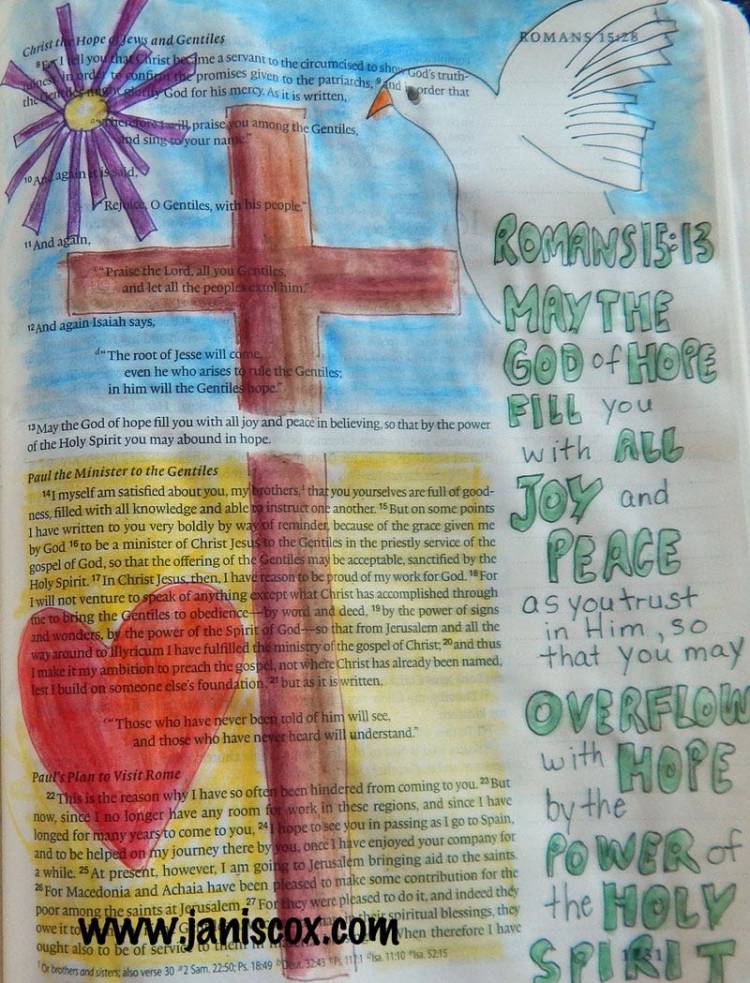 ROMANS 15:28
Christ the Hope of Jews and Gentiles
8For I tell you that Christ became a servant to the circumcised to show God's truth-
fulness in order to confirm the promises given to the patriarchs, 9and in order that
the Gentiles might glorify God for his mercy. As it is written,
"Therefore I will praise you among the Gentiles,
and sing to your name."
10And again it is said,
"Rejoice, O Gentiles, with his people."
11And again,
"Praise the Lord, all you Gentiles,
and let all the peoples extol him."
12And again Isaiah says,
d"The root of Jesse will come,
even he who arises to rule the Gentiles;
in him will the Gentiles hope."
13May the God of hope fill you with all joy and peace in believing, so that by the power
of the Holy Spirit you may abound in hope.
Paul the Minister to the Gentiles
14I myself am satisfied about you, my brothers,1 that you yourselves are full of good-
ness, filled with all knowledge and able to instruct one another. 15But on some points
I have written to you very boldly by way of reminder, because of the grace given me
by God 16to be a minister of Christ Jesus to the Gentiles in the priestly service of the
gospel of God, so that the offering of the Gentiles may be acceptable, sanctified by the
Holy Spirit. 17In Christ Jesus, then, I have reason to be proud of my work for God. 18For
I will not venture to speak of anything except what Christ has accomplished through
me to bring the Gentiles to obedience—by word and deed, 19by the power of signs
and wonders, by the power of the Spirit of God—so that from Jerusalem and all the
way around to Illyricum I have fulfilled the ministry of the gospel of Christ; 20and thus
I make it my ambition to preach the gospel, not where Christ has already been named,
lest I build on someone else's foundation, 21but as it is written,
"Those who have never been told of him will see,
and those who have never heard will understand."
Paul's Plan to Visit Rome
22This is the reason why I have so often been hindered from coming to you. 23But
now, since I no longer have any room for work in these regions, and since I have
longed for many years to come to you, 24I hope to see you in passing as I go to Spain,
and to be helped on my journey there by you, once I have enjoyed your company for
a while. 25At present, however, I am going to Jerusalem bringing aid to the saints.
26For Macedonia and Achaia have been pleased to make some contribution for the
poor among the saints at Jerusalem. 27For they were pleased to do it, and indeed they
owe it to their spiritual blessings, they
ought also to be of service to them in when therefore I have
1 Or brothers and sisters; also verse 30 a 2 Sam. 22:50; Ps. 18:49 b Deut. 32:43 c Ps. 117:1 d Isa. 11:10 e Isa. 52:15
ROMANS 15:13
MAY THE
GOD of HOPE
FILL you
with ALL
JOY and
PEACE
as you trust
in Him, so
that you may
OVERFLOW
with HOPE
by the
POWER of
the HOLY
SPIRIT
www.janiscox.com